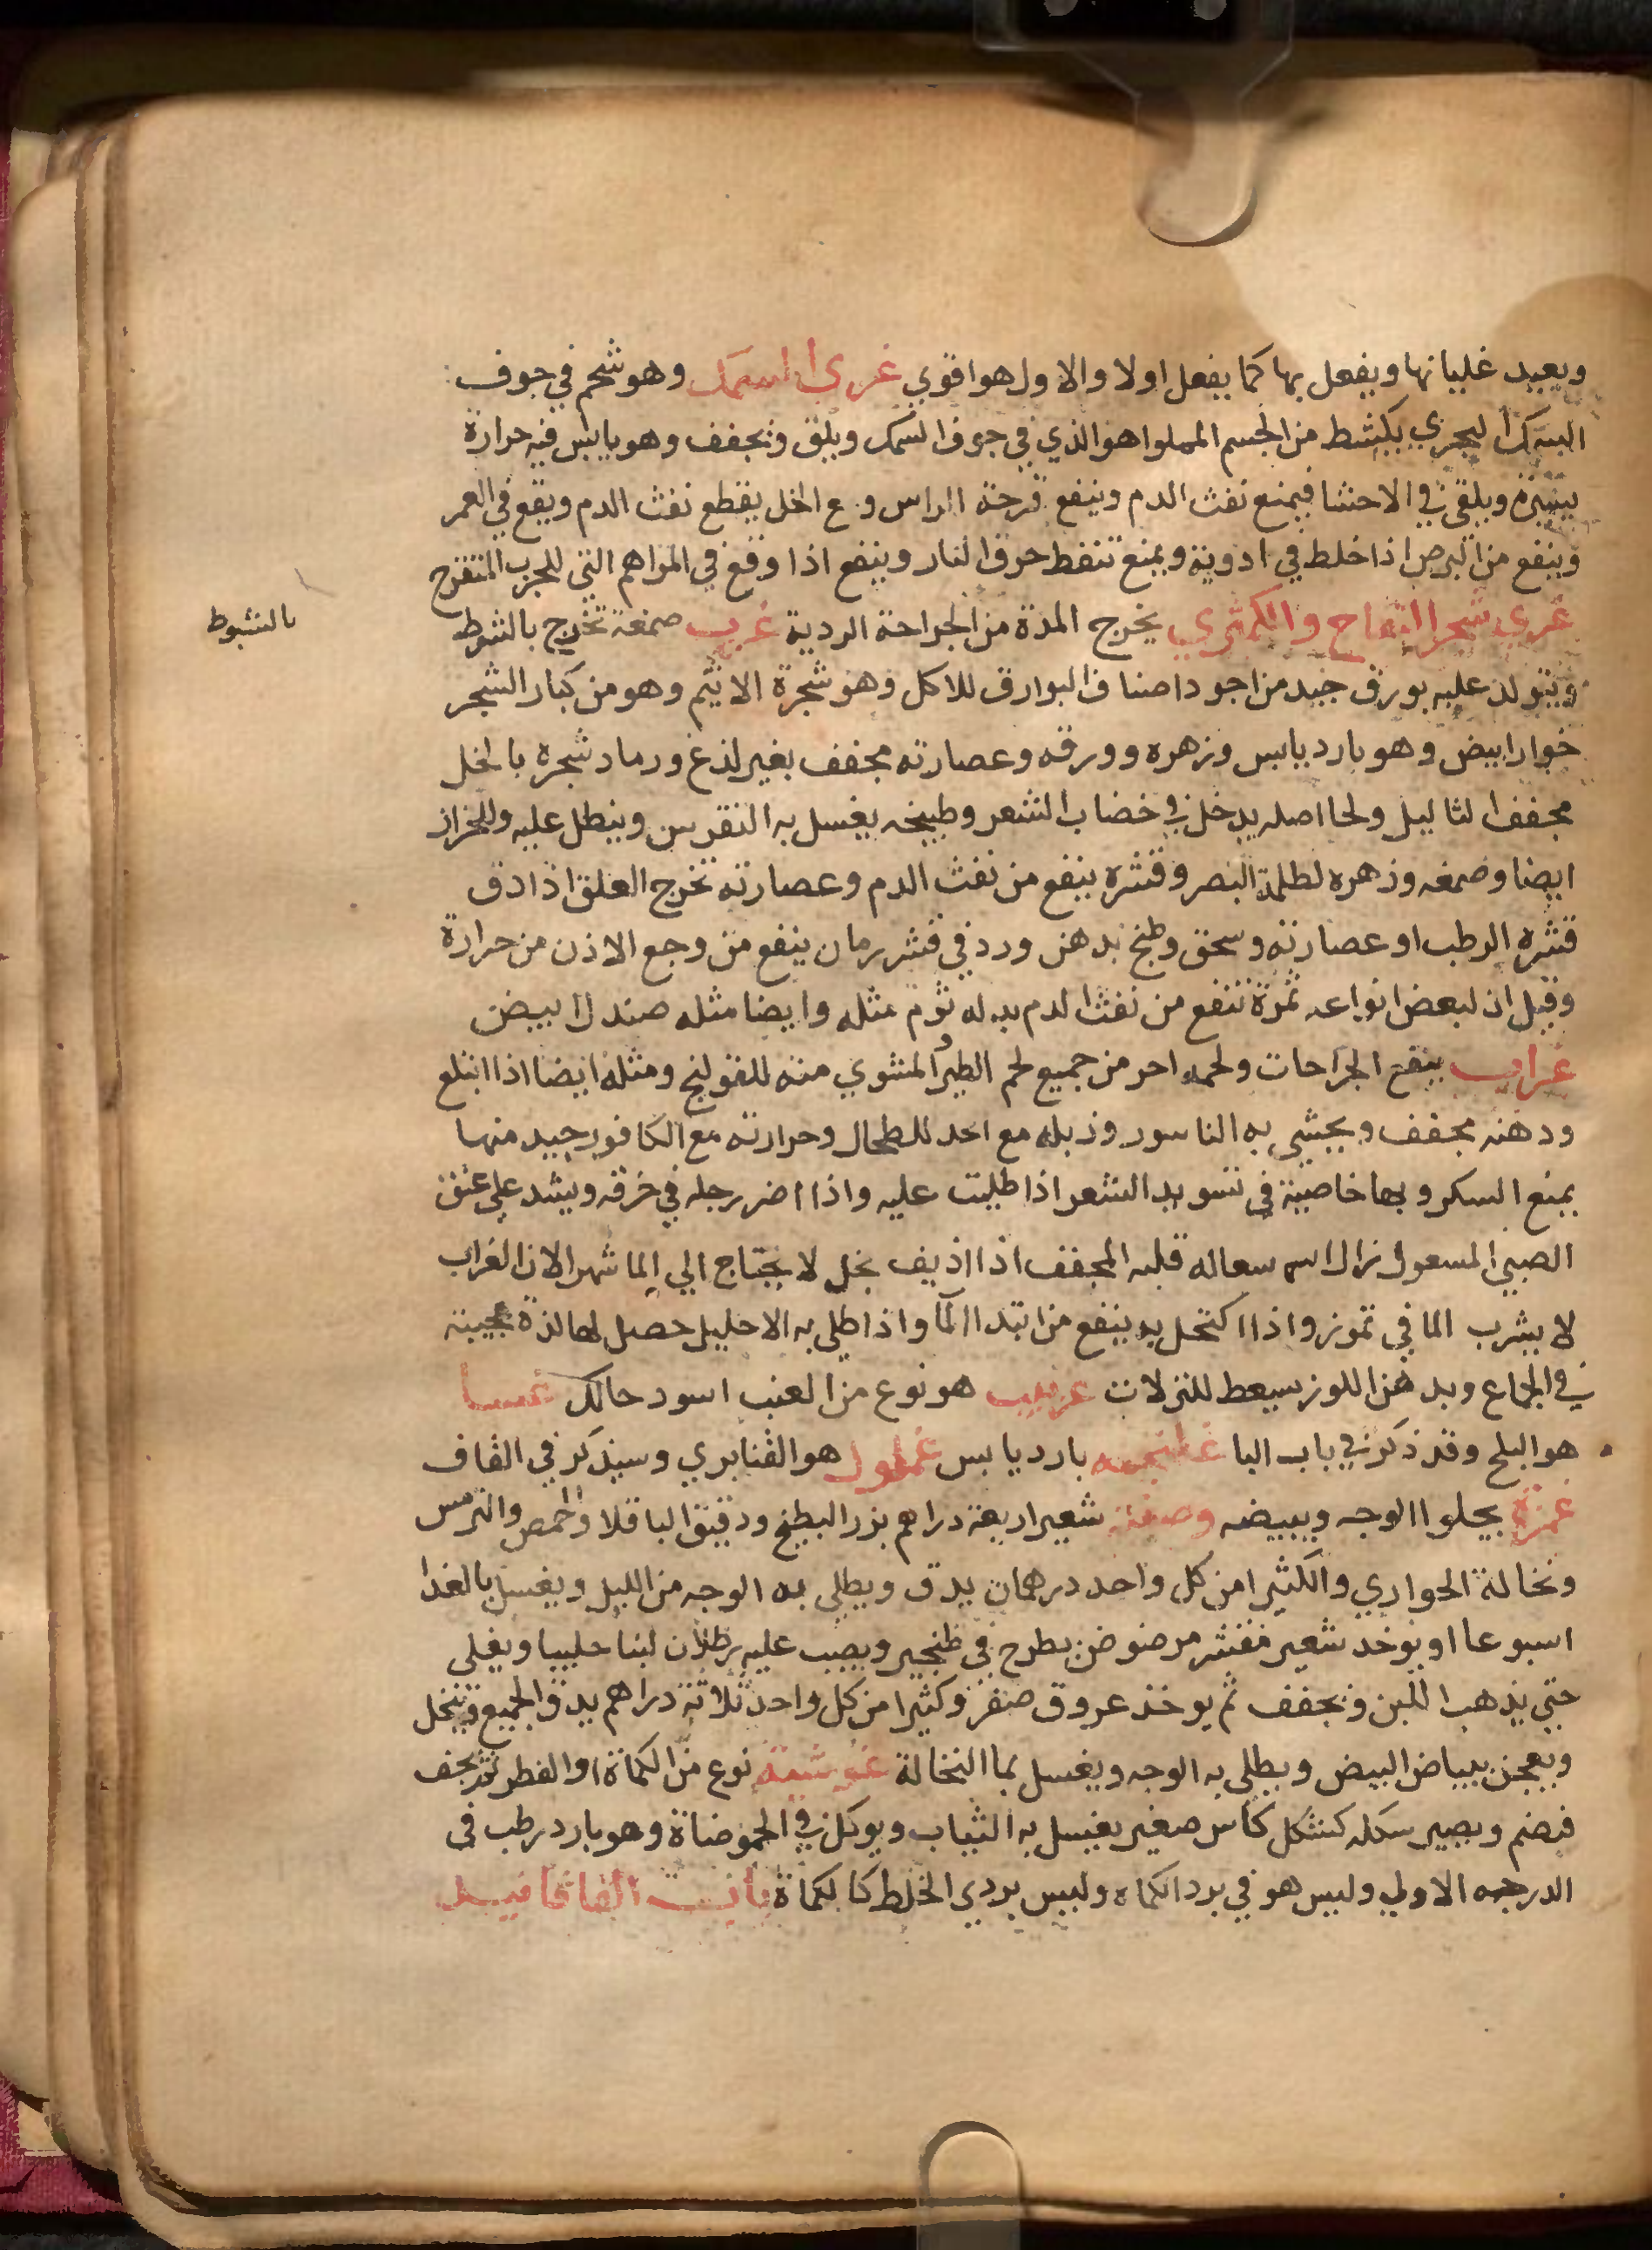 ويعيد غليانها ويفعل بها كما يفعل اولا والاول هو اقوي غري السمك وهو شحم في جوف
السمك البحري يكشط من الجسم المملوا هو الذي في جوف السمك ويلق ويجفف وهو يابس فيه حرارة
يسيرة ويلقي في الاحشا فيمنع نفث الدم وينفع قرحة الراس و ع الخل يقطع نفث الدم ويقع في العمر
وينفع من البرص اذا خلط في ادوية ويمنع تنفط حرق النار وينفع اذا وقع في المراهم التي للجرب المتقرح
غري شجر التفاح والكمثري يخرج المدة من الجراحة الردية غرب صمغة تخرج بالشوط
بالشبوط
ويتولد عليه بورق جيد من اجود اصناف البوارق للاكل وهو شجرة الايثم وهو من كبار الشجر
خوار ابيض وهو بارد يابس وزهره وورقه وعصارته مجفف بغير لذع ورماد شجره بالخل
مجفف الثاليل ولحا اصله يدخل في خضاب الشعر وطبيخه يغسل به النقرس وينطل عليه وللحزاز
ايضا وصمغه وزهره لظلمة البصر وقشره ينفع من نفث الدم وعصارته تخرج العلق اذا دق
قشره الرطب او عصارته وسحق وطبخ بدهن ورد في قشر رمان ينفع من وجع الاذن من حرارة
وقيل ان لبعض انواعه ثمرة تنفع من نفث الدم بدله ثوم مثله وايضا مثله صندل ابيض
غراب ينفع الجراحات ولحمه احر من جميع لحم الطير والمشوي منه للقولنج ومثله ايضا اذا ابتلع
ودهنه مجفف ويحشي به الناسور وزبله مع الخل للطحال وحرارته مع الكافور جيد منها
يمنع السكر وبها خاصية في تسويد الشعر اذا طليت عليه واذا اضر رجله في خرقه ويشد علي عنق
الصبي المسعول زال سعاله قلبه المجفف اذا اذيف بخل لا يحتاج الي الما شهر الان الغراب
لا يشرب الما في تموز واذا اكتحل به ينفع من ابتدا الما واذا طلي به الاحليل حصل لها لذة عجيبة
في الجماع وبدهن اللوز يسعط للنزلات غربيب هو نوع من العنب اسود حالك غسا
هو البلح وقد ذكر في باب البا بارد يابس غملول هو القنابري وسيذكر في القاف
غمرة يجلوا الوجه ويبيضه وصفته شعير اربعة دراهم بزر البطيخ ودقيق الباقلا والحمص والترمس
ونخالة الحواري والكثيرا من كل واحد درهمان يدق ويطلي به الوجه من الليل ويغسل بالغدا
اسبوعا او يوخذ شعير مقشر مرضوض يطرح في طنجير ويصب عليه رطلان لبنا حليبا ويغلي
حتي يذهب اللبن ويجفف ثم يوخذ عروق صفر وكثيرا من كل واحد ثلاثة دراهم يدق الجميع وينخل
ويعجن ببياض البيض ويطلي به الوجه ويغسل بما النخالة غوشنة نوع من الكماة او الفطر تجف
فتضم ويصير سكله كشكل كاس صغير يغسل به الثياب ويوكل في الحموضاة وهو بارد رطب في
الدرجه الاولي وليس هو في برد الكماه وليس بردي الخلط كالكماة باب الفا